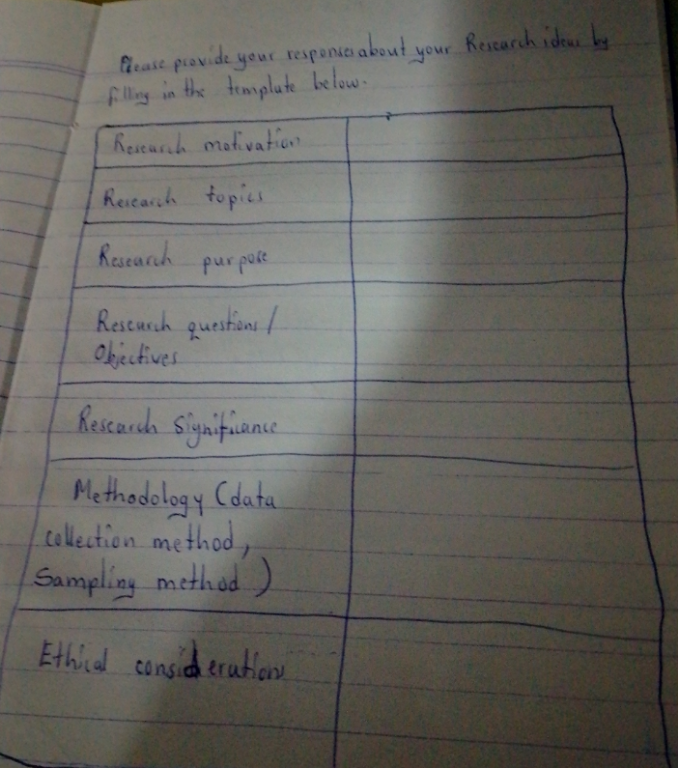 Please provide your responses about your Research ideas by
filling in the template below.
Research motivation
Research topics
Research purpose
Research questions/
Objectives
Research Significance
Methodology (data
collection method,
Sampling method)
Ethical considerations